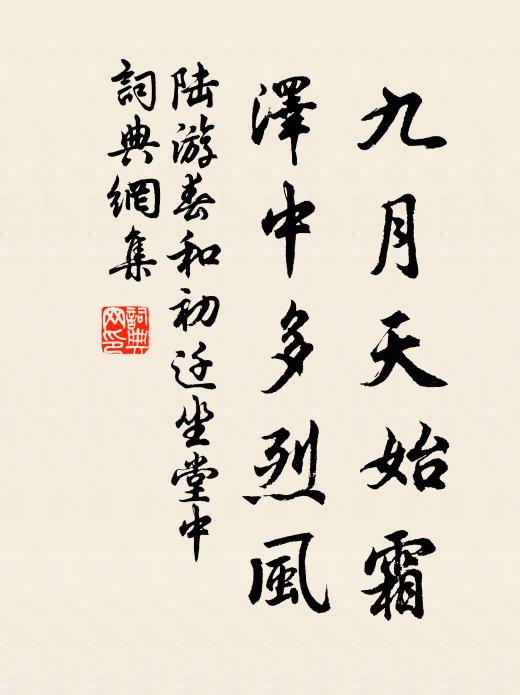 九月天始霜
澤中多烈風
陆游春和初迁坐堂中
詞典網集
詞典
网印